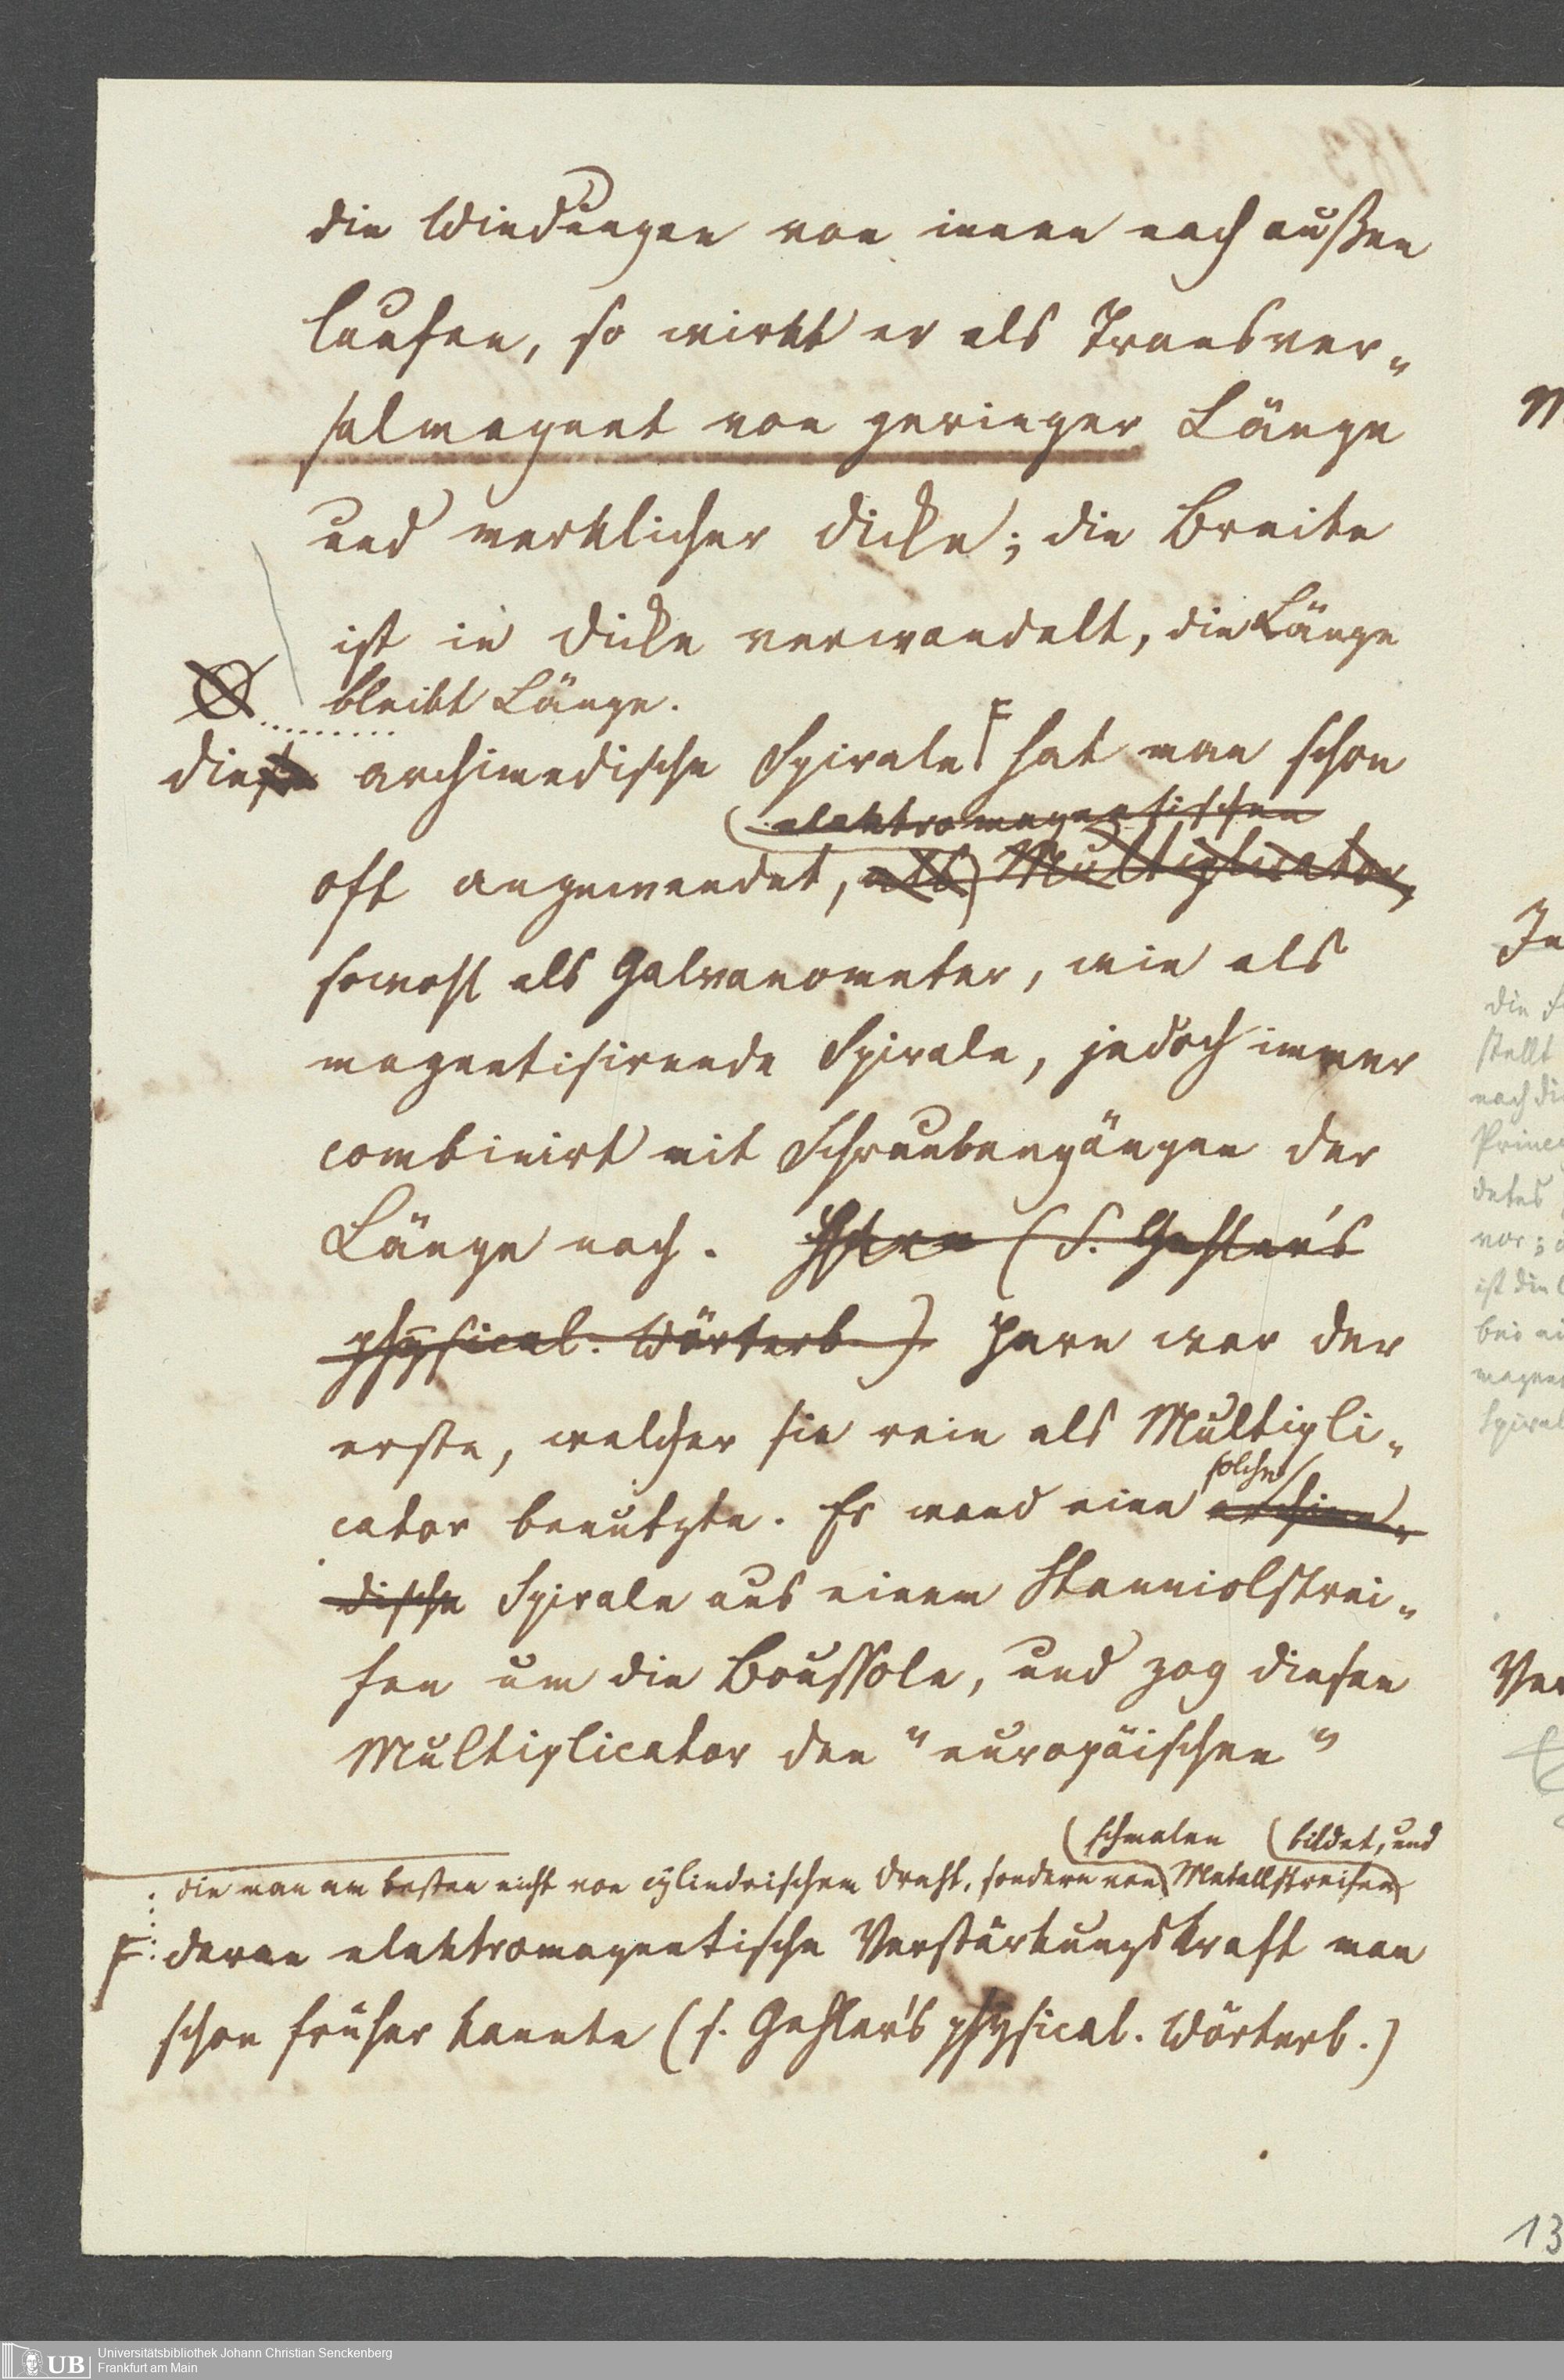 die Windungen von innen nach außen
laufen, so wirkt er als Transver„
salmagnet von geringer Länge
und merklicher Dicke; die Breite
ist in Dicke verwandelt, die Länge
bleibt Länge.
diese archimedische Spirale F hat man schon
elektromagnetischen
oft angewendet, als Multiplicator,
sowohl als Galvanometer, wie als
magnetisirende Spirale, jedoch immer
combinirt mit Schraubengängen der
Länge nach. (S. Gehler's
physical. Wörterb.) Hare war der
erste, welcher sie rein als Multipli„
solche
cator benutzte. Er wand eine archime„
dische Spirale aus einem Stanniolstrei„
fen um die Boussole, und zog diesen
Multiplicator den "europäischen"
schmalen bildet, und
die man am besten nicht von cylindrischem Draht, sondern von Metallstreifen
F: deren elektromagnetische Verstärkungskraft man
schon früher kannte (s. Gehler's physical. Wörterb.)
M
In
die S
stellt
nach di
Princ
detes
vor;
ist die
bei ei
magnet
Spiral
Ver
13
Universitätsbibliothek Johann Christian Senckenberg
UB Frankfurt am Main